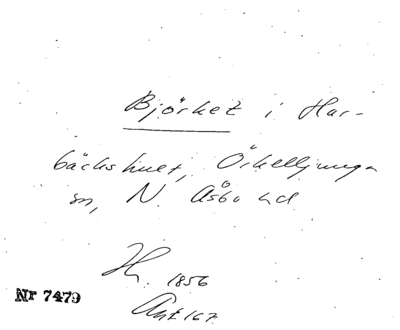 Björket i Har-
bäckshult, Örkelljunga
sn, N. Åsbo hd
H. 1856
Aht 167
Nr 7479